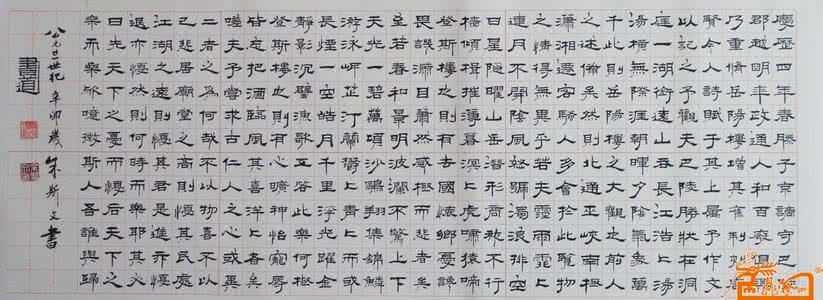 慶歷四年春滕子京謫守巴陵
郡越明年政通人和百廢俱興
乃重脩岳陽樓增其舊制刻唐
賢今人詩賦于其上屬予作文
以記之予觀夫巴陵勝狀在洞
庭一湖銜遠山吞長江浩〻湯
湯橫無際涯朝暉夕陰氣象萬
千此則岳陽樓之大觀也前人
之述備矣然則北通巫峽南極
瀟湘遷客騷人多會於此覽物
之情得無異乎若夫霪雨霏〻
連月不開陰風怒號濁浪排空
日星隱曜山岳潛形商旅不行
檣傾楫摧薄暮冥〻虎嘯猿啼
登斯樓也則有去國懷鄉憂讒
畏譏滿目蕭然感極而悲者矣
至若春和景明波瀾不驚上下
天光一碧萬頃沙鷗翔集錦鱗
游泳岸芷汀蘭郁〻青〻而或
長煙一空皓月千里浮光躍金
靜影沉璧漁歌互答此樂何極
登斯樓也則有心曠神怡寵辱
皆忘把酒臨風其喜洋〻者矣
嗟夫予嘗求古仁人之心或異
二者之為何哉不以物喜不以
己悲居廟堂之高則憂其民處
江湖之遠則憂其君是進亦憂
退亦憂然則何時而樂耶其必
曰先天下之憂而憂后天下之
樂而樂歟噫微斯人吾誰與歸
公元廿世紀辛卯歲朱斯文書
書道